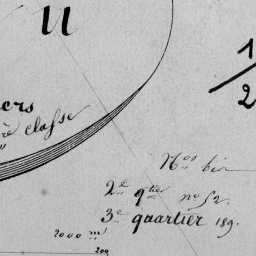 u
1/2
ers
re classe
"
Nos bis
2e qtier no 52.
3e quartier 189.
2000 m
200